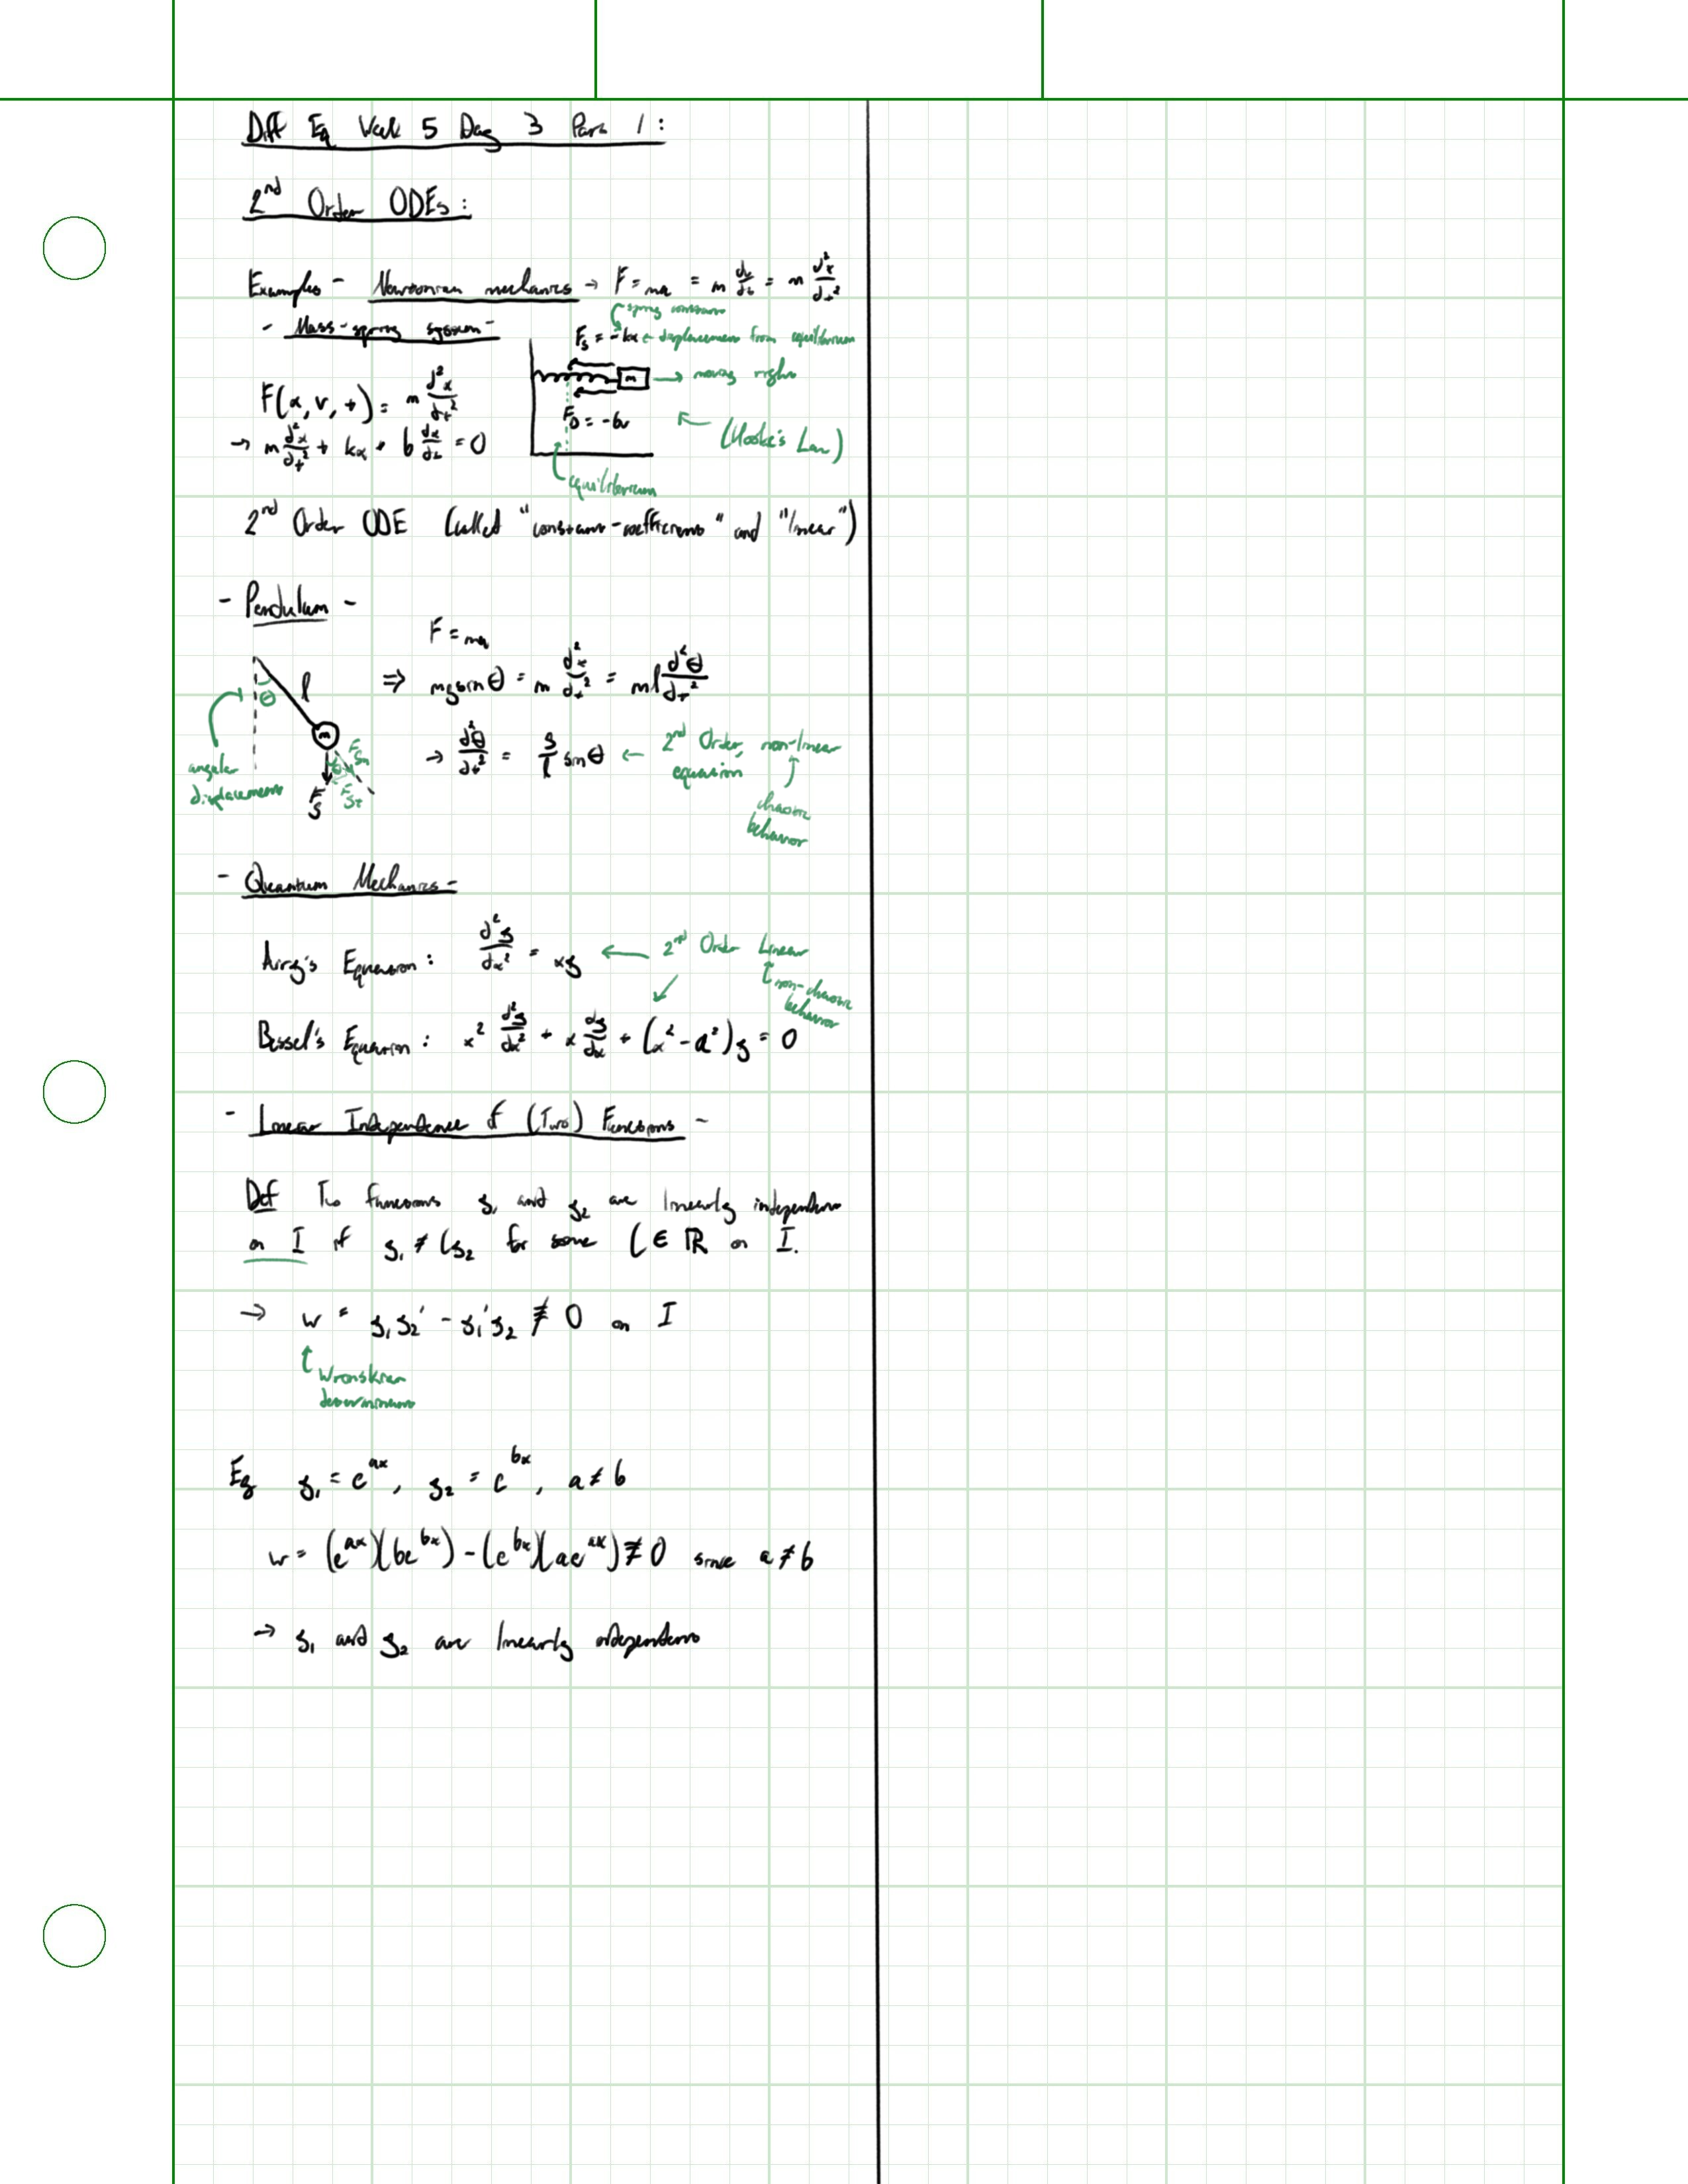 Diff Eq Week 5 Day 3 Part 1:
2nd Order ODEs:
Examples - Newtonian mechanics → F = ma = m dv/dt = m d²x/dt²
spring constant
- Mass-spring system -
F_s = -kx ← displacement from equilibrium
m → moving right
F(x, v, t) = m d²x/dt²
F_D = -bv
← (Hooke's Law)
→ m d²x/dt² + kx + b dx/dt = 0
equilibrium
2nd Order ODE (called "constant-coefficients" and "linear")
- Pendulum -
F = ma
θ l ⇒ mg sin θ = m d²x/dt² = ml d²θ/dt²
m
→ d²θ/dt² = g/l sin θ ← 2nd Order, non-linear equation
angular displacement
F_g
chaotic behavior
- Quantum Mechanics -
Airy's Equation: d²y/dx² = xy ← 2nd Order Linear
non-chaotic behavior
Bessel's Equation: x² d²y/dx² + x dy/dx + (x² - a²)y = 0
- Linear Independence of (Two) Functions -
Def Two functions y₁ and y₂ are linearly independent
on I if y₁ ≠ Cy₂ for some C ∈ ℝ on I.
→ w = y₁y₂' - y₁'y₂ ≢ 0 on I
Wronskian
determinant
Eg y₁ = e^{ax}, y₂ = e^{bx}, a ≠ b
w = (e^{ax})(be^{bx}) - (e^{bx})(ae^{ax}) ≢ 0 since a ≠ b
→ y₁ and y₂ are linearly independent